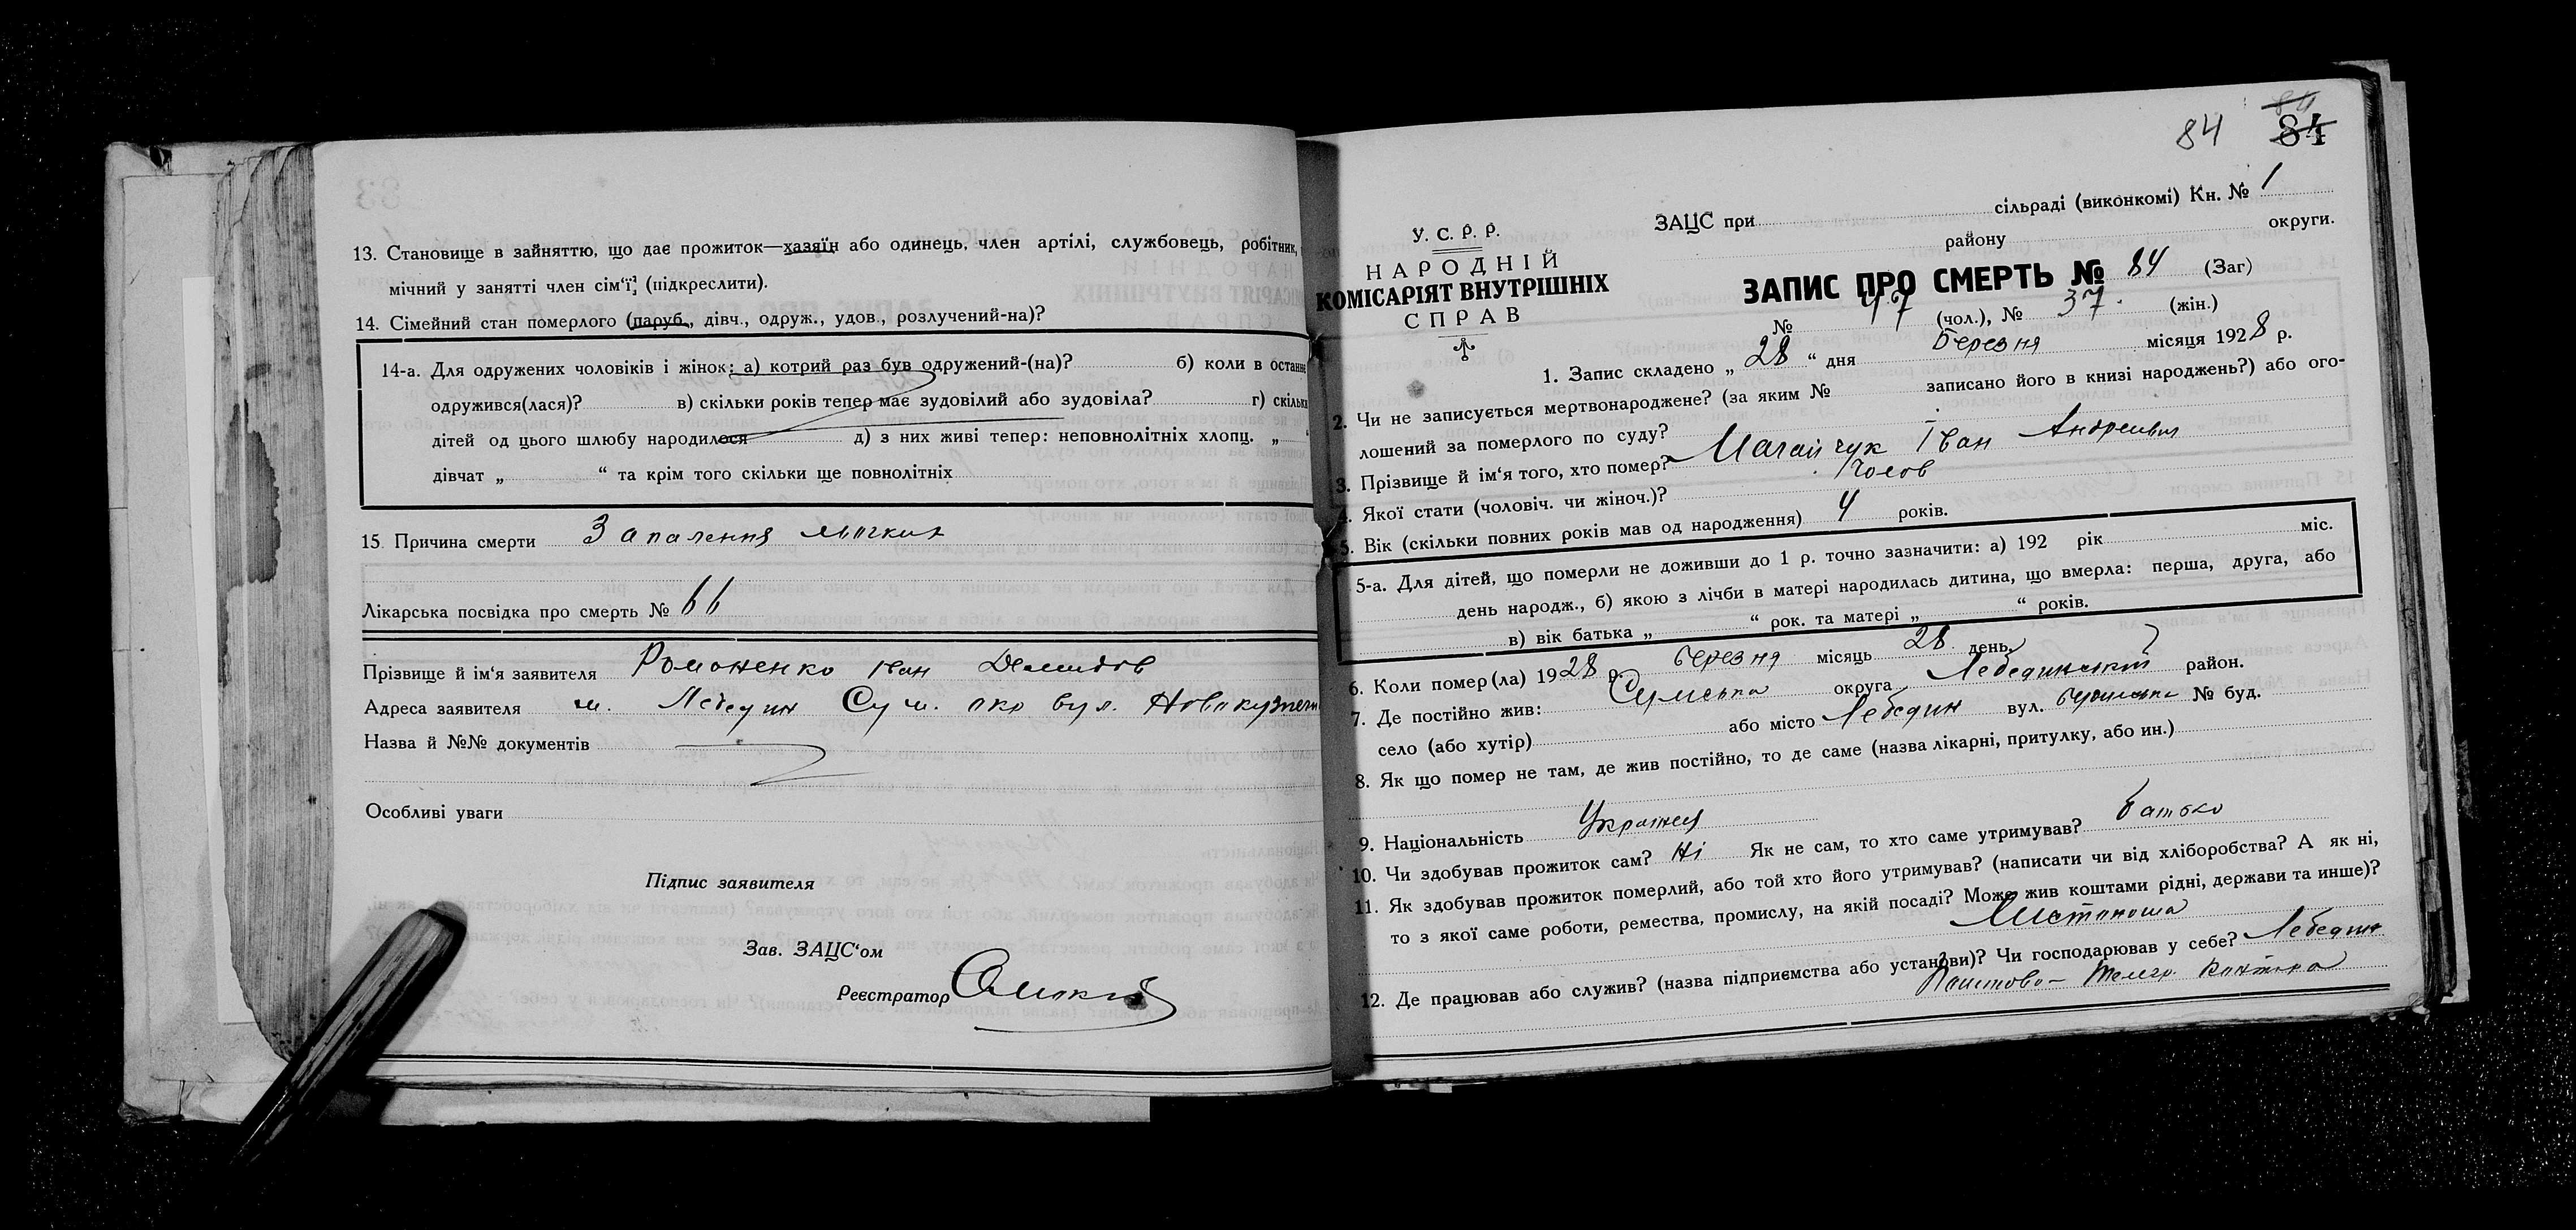 13. Становище в зайняттю, що дає прожиток—хазяїн або одинець, член артілі, службовець, робітник,
мічний у занятті член сім‘ї, (підкреслити).
14. Сімейний стан померлого (паруб., дівч., одруж., удов., розлучений-на)?
14-а. Для одружених чоловіків і жінок: а) котрий раз був одружений-(на)? б) коли в останнє
одружився(лася)? в) скільки років тепер має зудовілий або зудовіла? г) скільки
дітей од цього шлюбу народилося д) з них живі тепер: неповнолітніх хлопц. „ “
дівчат „ “ та крім того скільки ще повнолітніх
15. Причина смерти Запалення мьягких
Лікарська посвідка про смерть № 66
Прізвище й ім‘я заявителя Романенко Іван Демидов
Адреса заявителя м. Лебедин Сум. окр вул. Новокузнечн
Назва й №№ документів
Особливі уваги
Підпис заявителя
Зав. ЗАЦС‘ом
Реєстратор
84 84
84
ЗАЦС при сільраді (виконкомі) Кн. № 1
району округи.
У. С. Р. Р.
НАРОДНІЙ
КОМІСАРІЯТ ВНУТРІШНІХ
СПРАВ
ЗАПИС ПРО СМЕРТЬ № 84 (Заг)
№ 47 (чол.), № 37. (жін.)
1. Запис складено „ 28 “ дня Березня місяця 1928 р.
2. Чи не записується мертвонароджене? (за яким № записано його в книзі народжень?) або ого-
лошений за померлого по суду?
3. Прізвище й ім‘я того, хто помер? Іван Андреевич
4. Якої стати (чоловіч. чи жіноч.)? Чолов
5. Вік (скільки повних років мав од народження) 4 років.
5-а. Для дітей, що померли не доживши до 1 р. точно зазначити: а) 192 рік міс.
день народж., б) якою з лічби в матері народилась дитина, що вмерла: перша, друга, або
в) вік батька „ “ рок. та матері „ “ років.
6. Коли помер(ла) 1928 р. березня місяць 28 день.
7. Де постійно жив: Сумська округа Лебединський район.
село (або хутір) або місто Лебедин вул. № буд.
8. Як що помер не там, де жив постійно, то де саме (назва лікарні, притулку, або ин.)
9. Національність Українец
10. Чи здобував прожиток сам? Ні Як не сам, то хто саме утримував? батько
11. Як здобував прожиток померлий, або той хто його утримував? (написати чи від хліборобства? А як ні,
то з якої саме роботи, ремества, промислу, на якій посаді? Може жив коштами рідні, держави та инше)?
Листоноша
12. Де працював або служив? (назва підприємства або установи)? Чи господарював у себе? Лебедин
Поштово-Телегр. Контора